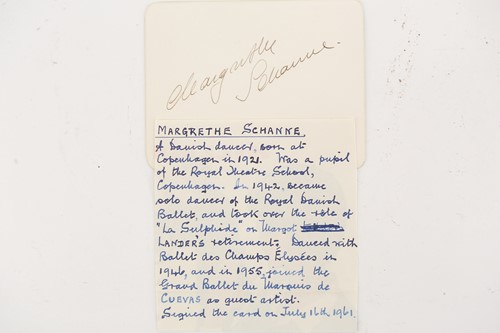 Margrethe
Schanne.
MARGRETHE SCHANNE.
A Danish dancer, born at
Copenhagen in 1921. Was a pupil
of the Royal Theatre School,
Copenhagen. In 1942, became
solo dancer of the Royal Danish
Ballet, and took over the rôle of
"La Sulphide" on Margot
LANDER'S retirement. Danced with
Ballet des Champs Élysées in
1946, and in 1955, joined the
Grand Ballet du Marquis de
CUEVAS as guest artist.
Signed the card on July 16th 1961.